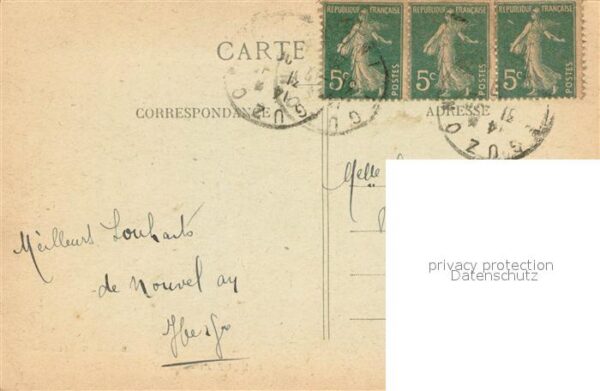 CARTE
REPUBLIQUE FRANÇAISE REPUBLIQUE FRANÇAISE REPUBLIQUE FRANÇAISE
5c POSTES 5c POSTES 5c POSTES
CORRESPONDANCE
ADRESSE
Melle
privacy protection
Datenschutz
Meilleurs Souhaits
de Nouvel an